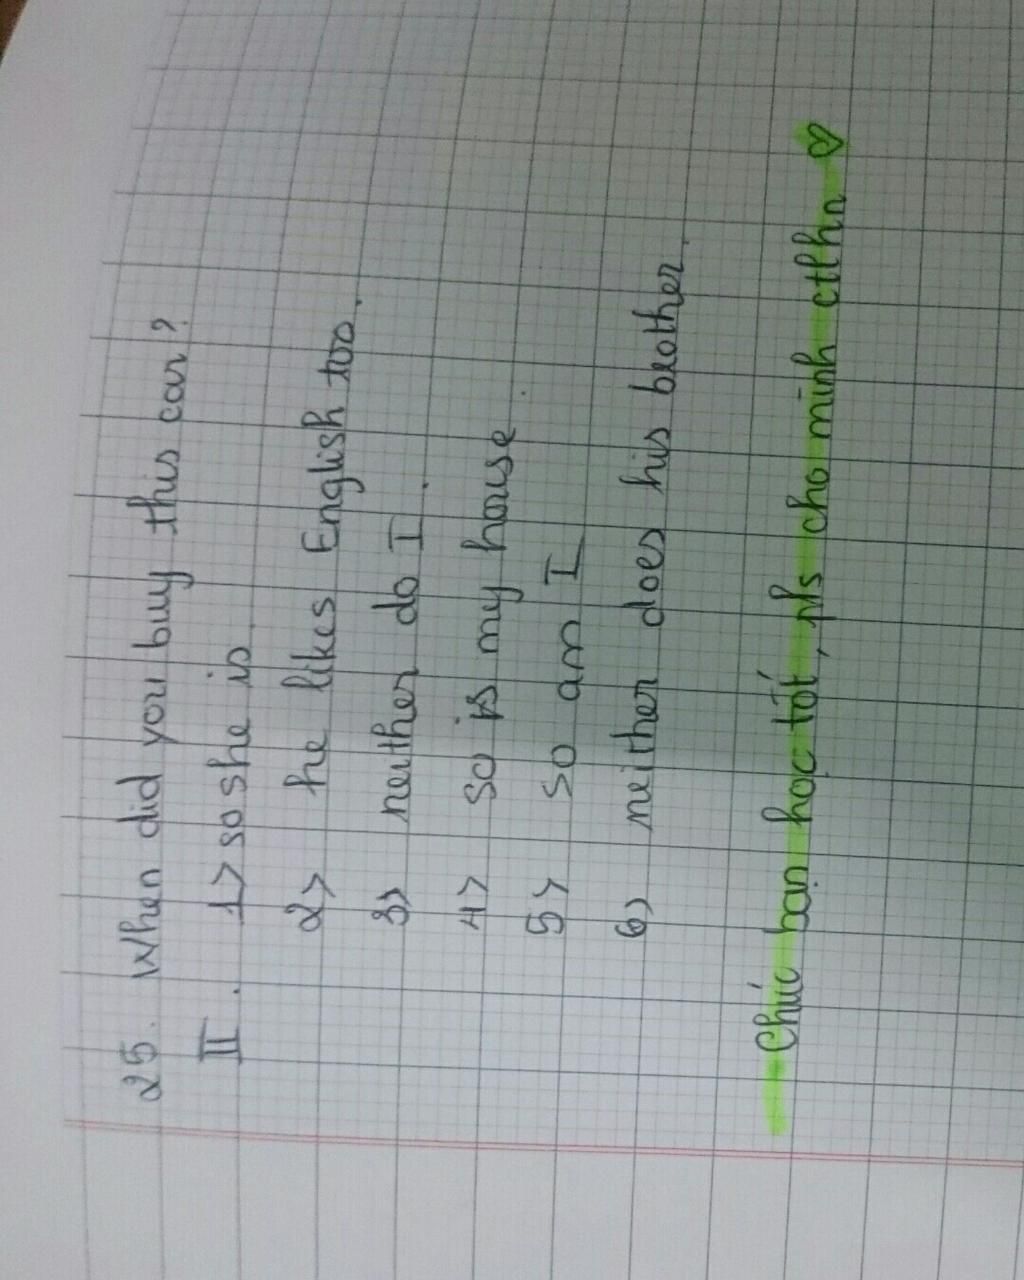 25. When did you buy this car?
II. 1> so she is
2> he likes English too.
3> neither do I.
4> so is my house.
5> so am I
6> neither does his brother.
Chúc bạn học tốt, pls cho mình ctlhn ♡